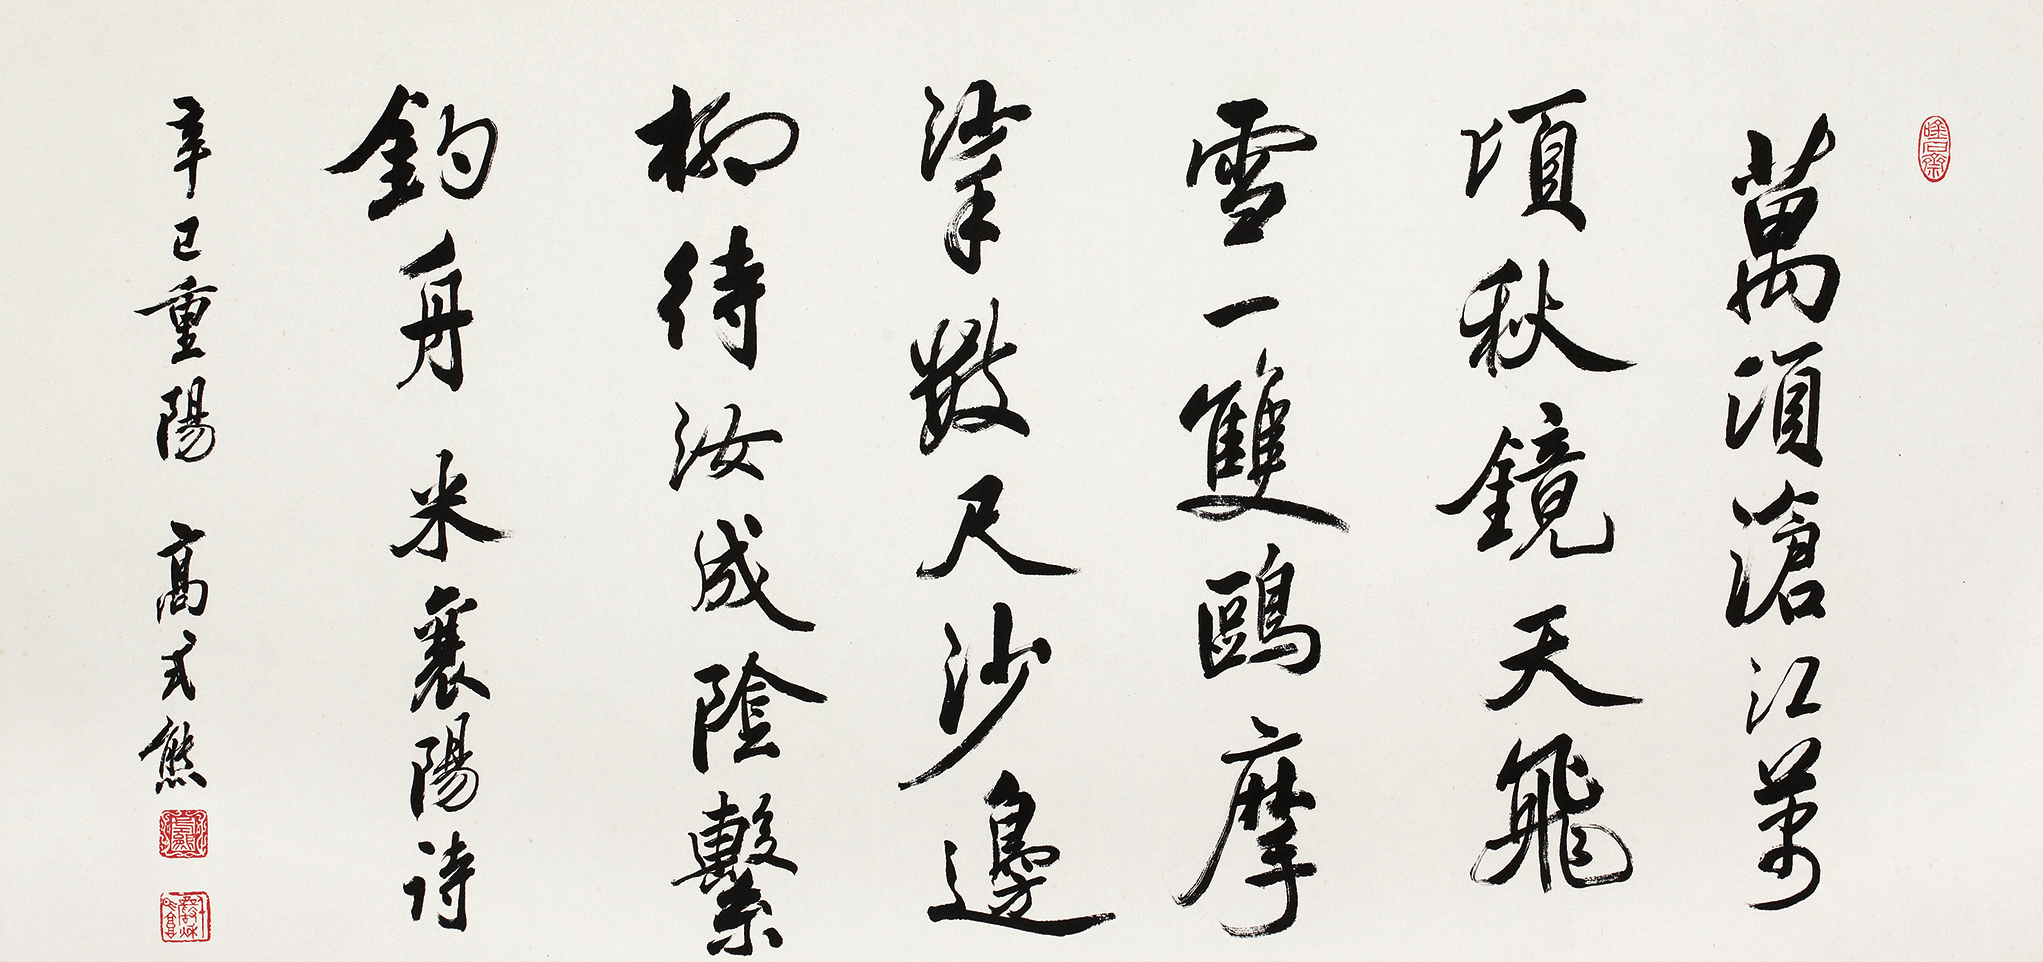 萬頃滄江萬
頃秋鏡天飛
雪一雙鷗摩
挲數尺沙邊
柳待汝成陰繫
釣舟 米襄陽詩
辛巳重陽 高式熊